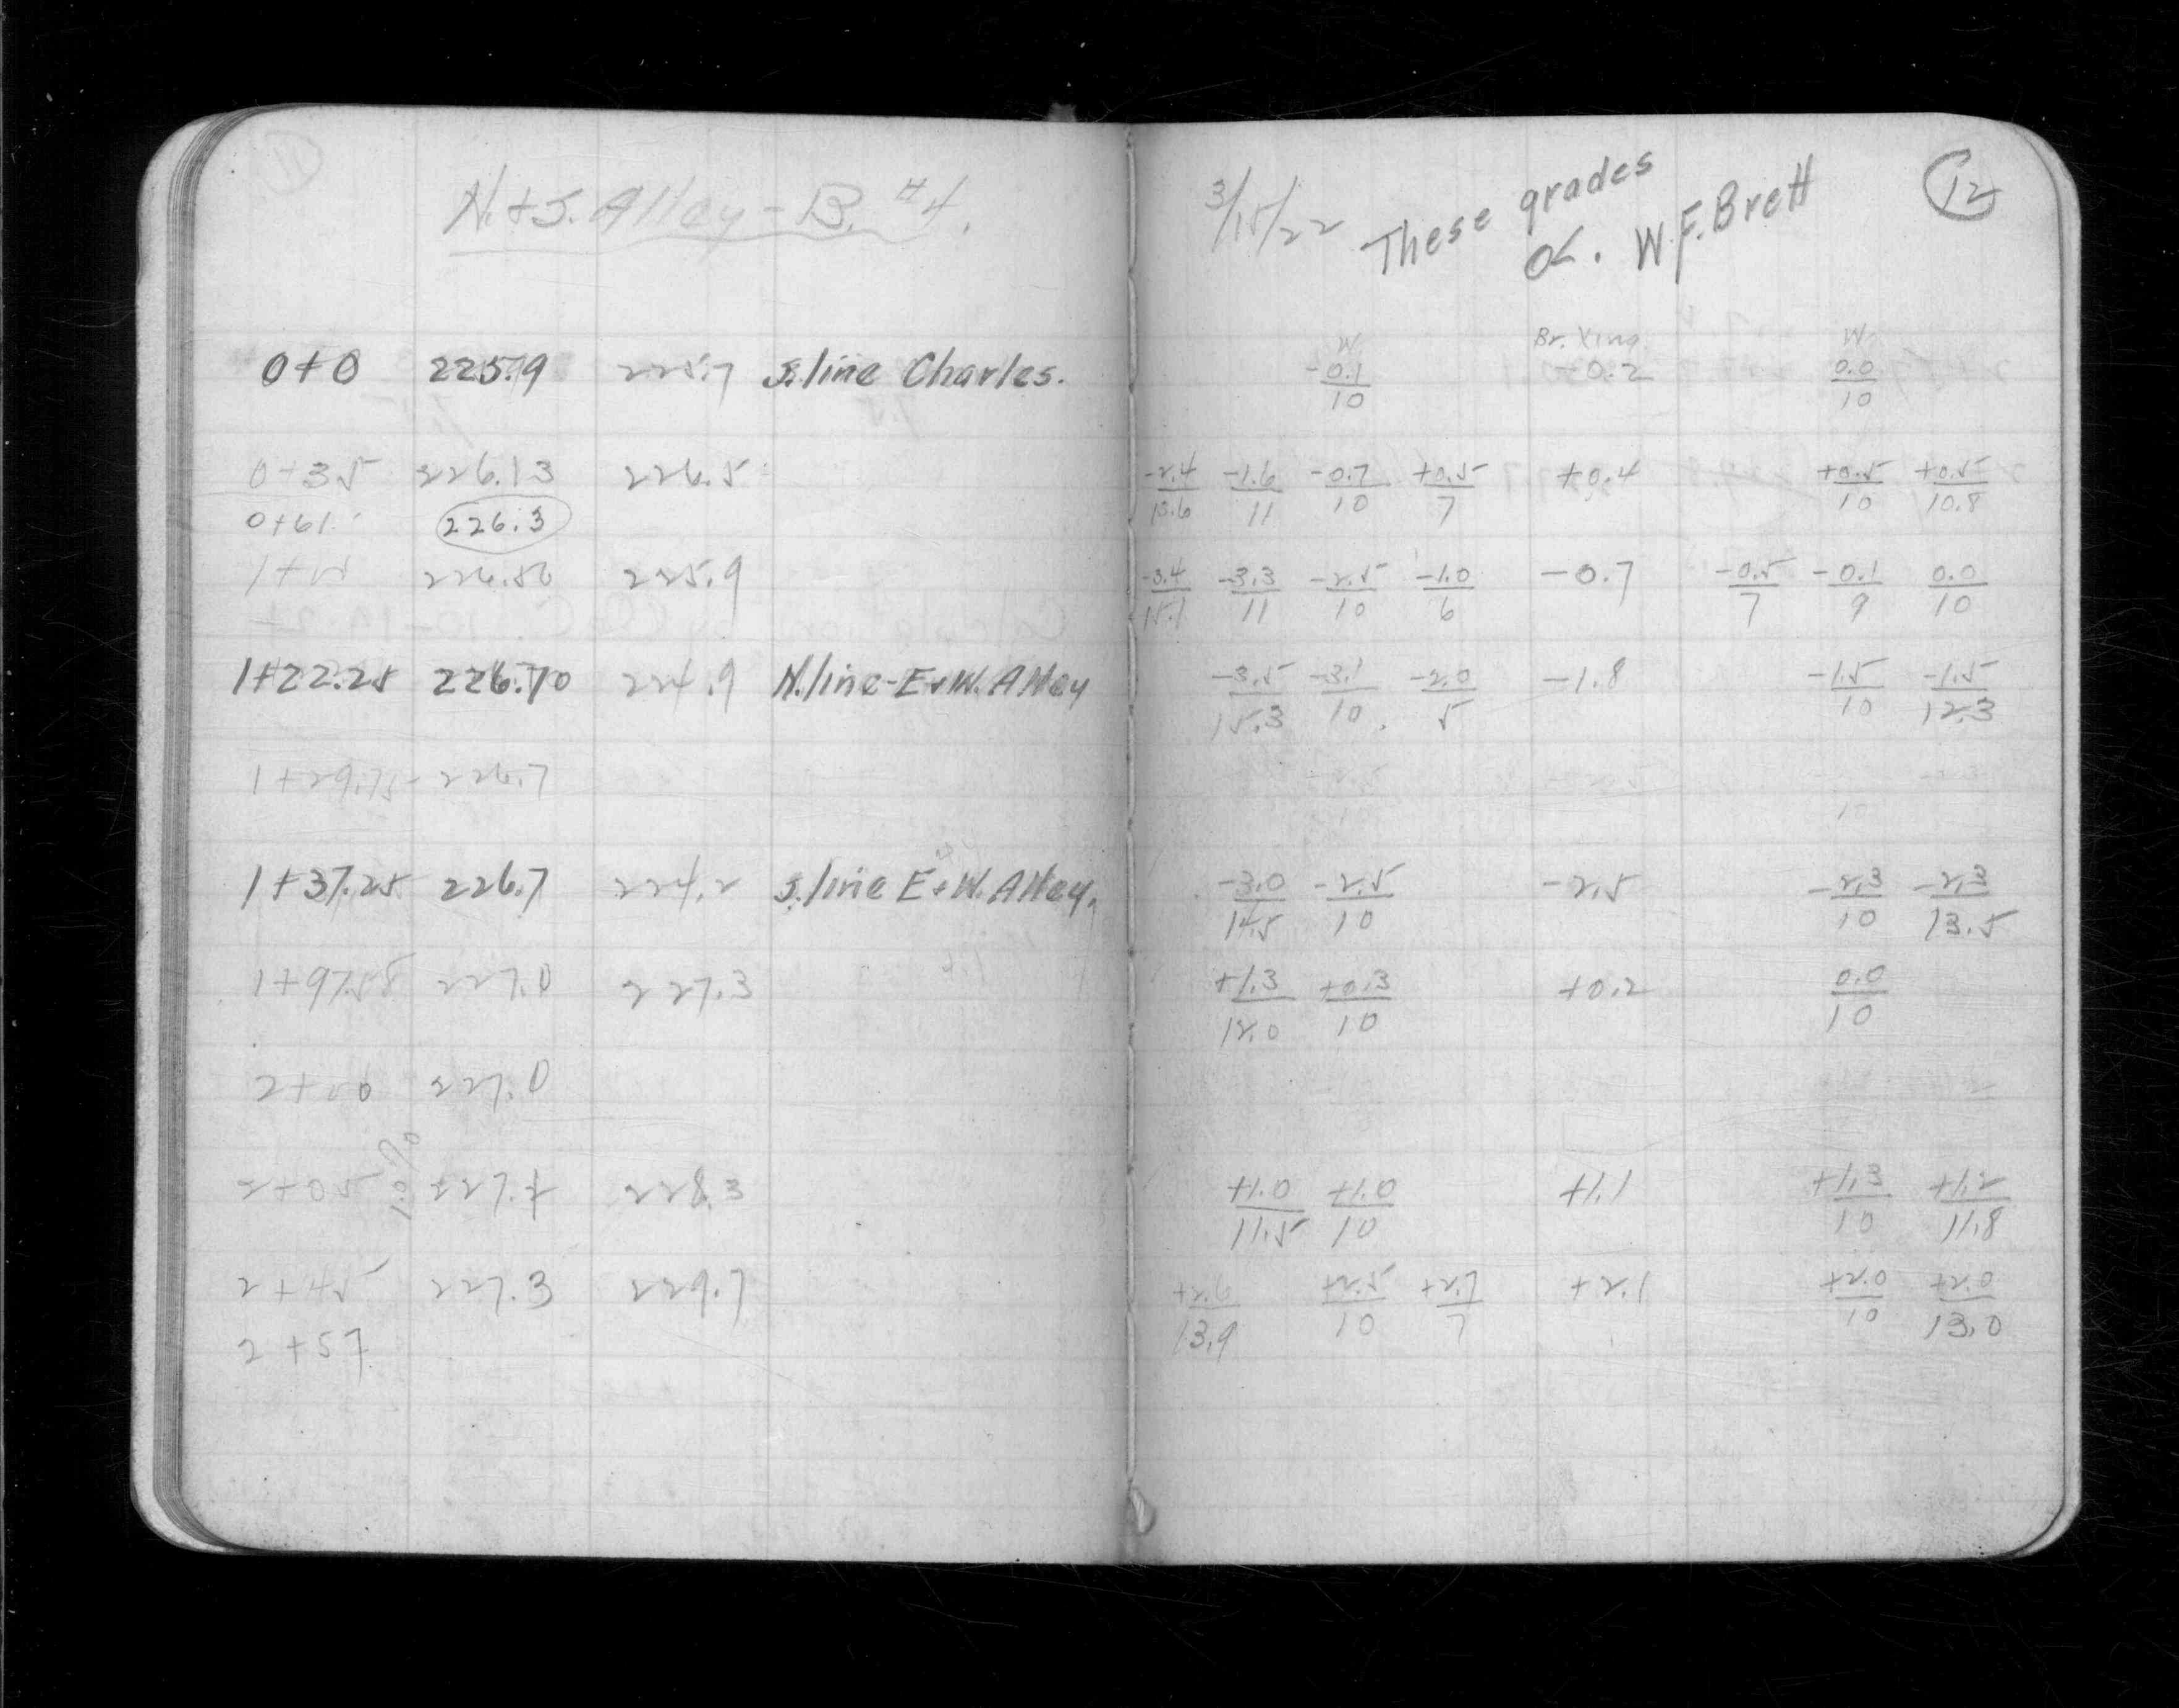 N.+S. Alley - B. #4.
0+0 225.9 225.7 S.line Charles.
0+35 226.13 226.5
0+61 226.3
226.50 225.9
1+22.25 226.70 224.9 N.line-E+W. Alley
1+29.75 226.7
1+37.25 226.7 224.2 S.line E+W. Alley.
227.0 227.3
2+00 227.0
2+05 1.0% 228.3
2+45 227.3 229.7
2+57
3/15/22 These grades
OK. W.F. Brett
12
W Br. Xing W.
-0.1 -0.2 0.0
10 10
-2.4 -1.6 -0.7 +0.5 +0.4 +0.5 +0.5
11 10 7 10 10.8
-3.4 -3.3 -2.5 -1.0 -0.7 -0.5 -0.1 0.0
15.1 11 10 6 7 9 10
-3.5 -3.1 -2.0 -1.8 -1.5 -1.5
15.3 10 5 10 12.3
-3.0 -2.5 -2.5 -2.3 -2.3
14.5 10 10 13.5
+1.3 +0.3 +0.2 0.0
12.0 10 10
+1.0 +1.0 +1.1 +1.3 +1.2
11.5 10 10 11.8
+2.6 +2.5 +2.7 +2.1 +2.0 +2.0
13.9 10 7 10 13.0